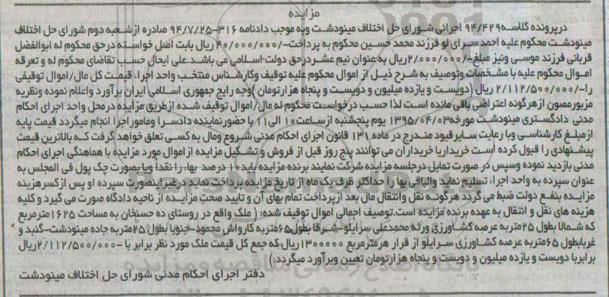 مزایده
درپرونده کلاسه ۹۴/۴۲۹ اجرائی شورای حل اختلاف مینودشت وبه موجب دادنامه ۳۱۶-۹۴/۷/۲۵ صادره ازشعبه دوم شورای حل اختلاف
مینودشت محکوم علیه احمد سرای لو فرزند محمد حسین محکوم به پرداخت -/۴۰/۰۰۰/۰۰۰ ریال بابت اصل خواسته درحق محکوم له ابوالفضل
قربانی فرزند موسی ونیز مبلغ -/۲/۰۰۰/۰۰۰ ریال به عنوان نیم عشر درحق دولت اسلامی می باشد. علی ایحال حسب تقاضای محکوم له و تعرفه
اموال محکوم علیه با مشخصات وتوصیف به شرح ذیل از اموال محکوم علیه توقیف وکارشناس منتخب واحد اجرا، قیمت کل مال/اموال توقیفی
را -/۲/۱۱۲/۵۰۰/۰۰۰ ریال (دویست و یازده میلیون و دویست و پنجاه هزارتومان) وجه رایج جمهوری اسلامی ایران برآورد واعلام نموده ونظریه
مزبور مصون از هرگونه اعتراضی باقی مانده است لذا حسب درخواست محکوم له مال/اموال توقیف شده ازطریق مزایده درمحل واحد اجرای احکام
مدنی دادگستری مینودشت مورخه ۱۳۹۵/۰۴/۰۳ یوم پنجشنبه ازساعت ۱۰ الی ۱۱ با حضورنماینده دادسرا ومامور اجرا انجام میگردد قیمت پایه
ازمبلغ کارشناسی وبا رعایت سایر قیود مندرج در ماده ۱۳۱ قانون اجرای احکام مدنی شروع ومال به کسی تعلق خواهد گرفت که بالاترین قیمت
پیشنهادی را قبول کرده است خریدار یا خریداران می توانند پنج روز قبل از فروش و تشکیل مزایده از اموال مورد مزایده با هماهنگی اجرای احکام
مدنی بازدید نموده وسپس در صورت تمایل درجلسه مزایده شرکت نمایند برنده مزایده باید ۱۰ درصد بها، را نقداً ویا بصورت چک پول فی المجلس به
عنوان سپرده به واحد اجرا، تسلیم نماید والباقی بها را حداکثر ظرف یک ماه از تاریخ مزایده پرداخت نماید درغیر اینصورت سپرده او پس از کسر هزینه
مزایده بنفع دولت ضبط می گردد هرگونه نقل وانتقال مال بعد ازپرداخت تمام بهای آن و تایید صحت مزایده از ناحیه دادگاه صورت می گیرد و کلیه
هزینه های نقل و انتقال به عهده برنده مزایده است. توصیف اجمالی اموال توقیف شده: (ملک واقع در روستای ده حسنخان به مساحت ۱۶۲۵ مترمربع
که شمالا بطول ۲۵متربه عرصه کشاورزی ورثه محمدعلی سرایلو-شرقا بطول ۶۵متربه کارواش محمود-جنوبا بطول ۲۵متربه جاده مینودشت-گنبد و
غربا بطول ۶۵متربه عرصه کشاورزی سرایلو از قرار هر مترمربع ۱۳۰۰۰۰۰ ریال که جمع کل قیمت ملک مورد نظر برابر با -/۲/۱۱۲/۵۰۰/۰۰۰ ریال
برابر با دویست و یازده میلیون و دویست و پنجاه هزارتومان تعیین وبرآورد میگردد.)
دفتر اجرای احکام مدنی شورای حل اختلاف مینودشت